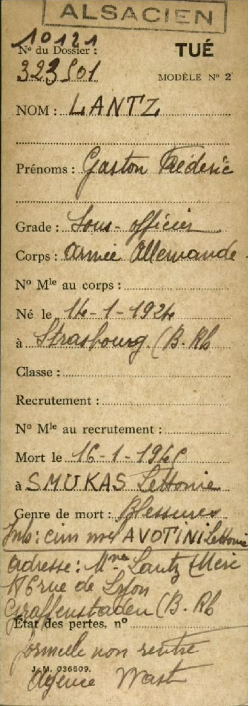 ALSACIEN
10121
N° du Dossier : TUÉ
323501 MODÈLE N° 2
NOM : LANTZ
Prénoms : Gaston Fréderic
Grade : Sous-officier
Corps : Armée Allemande
N° Mle au corps :
Né le 14-1-1924
à Strasbourg (B. Rh
Classe :
Recrutement :
N° Mle au recrutement :
Mort le 16-1-194
à SMUKAS Lettonie
Genre de mort : Blessures
Inh: cim mre AVOTINI Lettonie
adresse: Mme Lantz (Mère
rue de Lyon
Graffenstaden (B. Rh
État des pertes, n°
formule non rentre
J. M. 036609.
Agence Wast